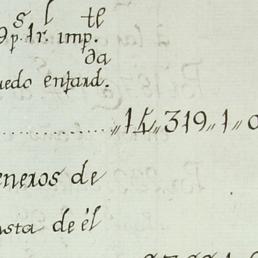 s l te
p.1r. imp.
da
uedo enfard.
"14"319"1"0
eneros de
usta de él